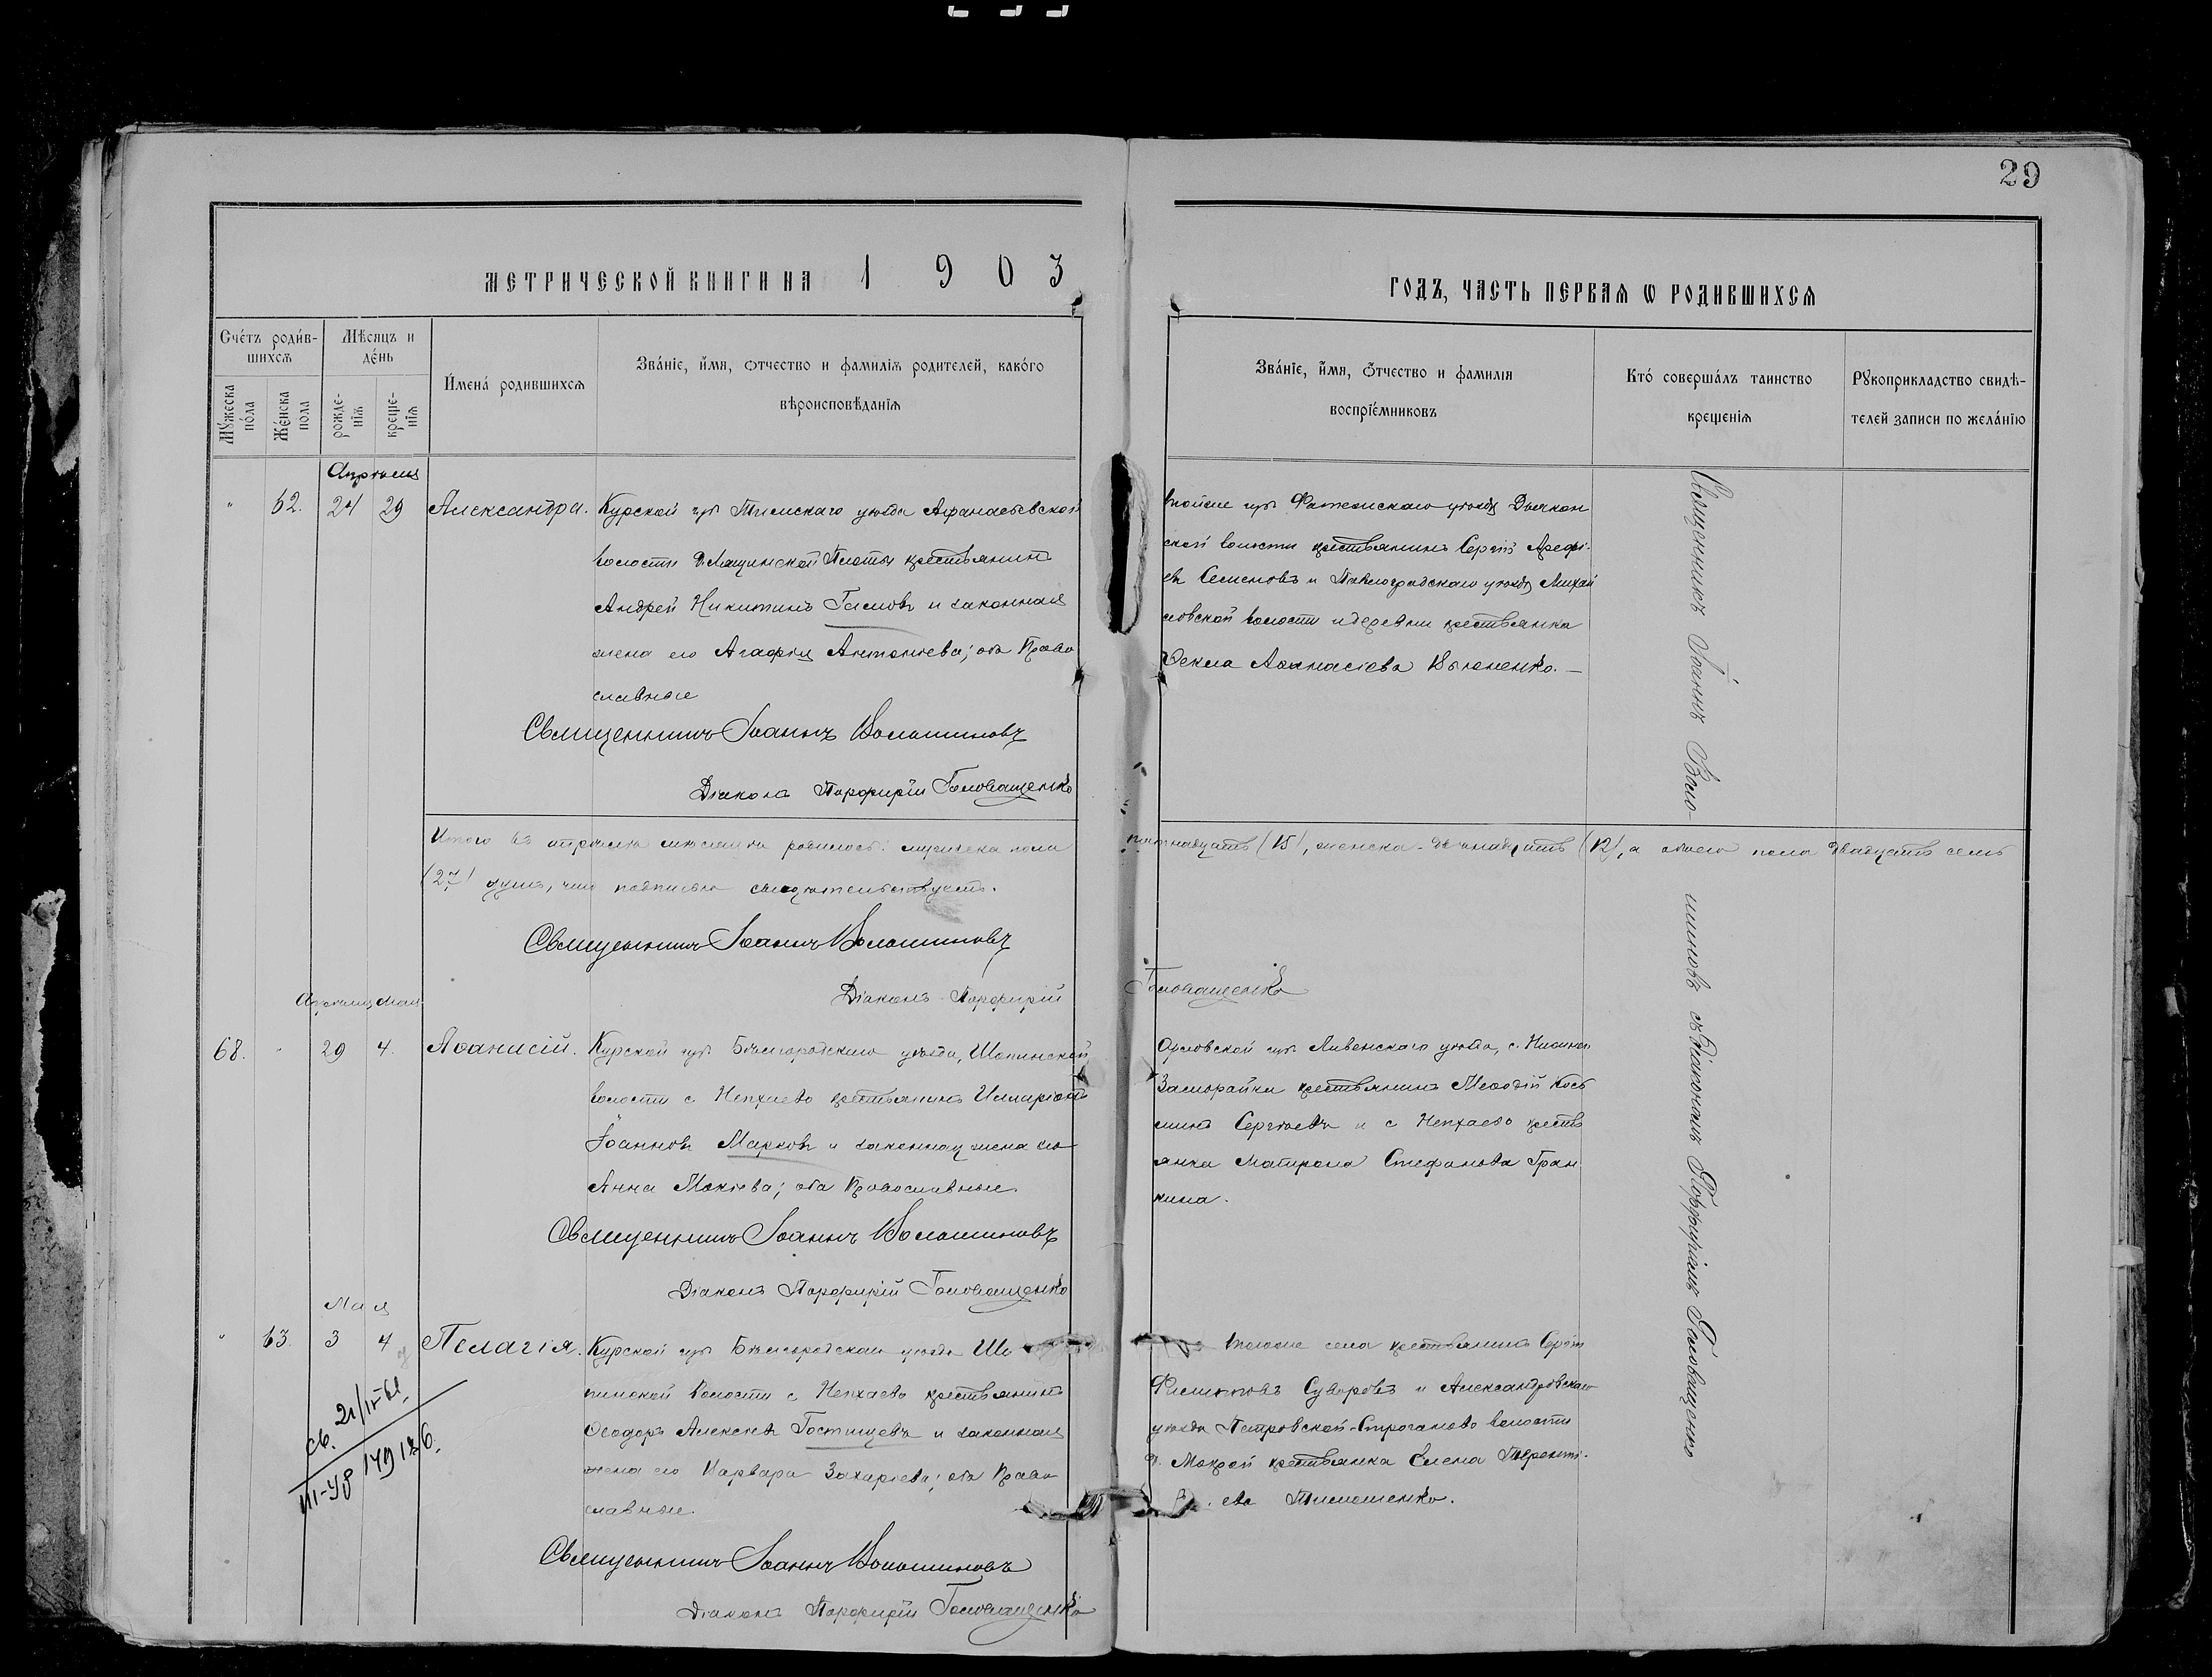 29
МЕТРИЧЕСКОЙ КНИГИ НА 1903
ГОДЪ, ЧАСТЬ ПЕРВАѦ Ѡ РОДИВШИХСѦ
Сче́тъ роди́в-
шихсѧ
Мѣсяцъ и
де́нь
Му́жеска
по́ла
Же́нска
пола
рожде-
нїѧ
креще-
нїѧ
И́мена́ родившихсѧ
Зва́нїе, и́мя, ѻтчество и фамилїѧ родителей, како́го
вѣроисповѣ́данїѧ
Зва́нїе, и́мя, ѻ́тчество и фамилїя
воспрїе́мниковъ
Кто́ соверша́лъ таинство
крещенїѧ
Рꙋкоприкладство свидѣ-
телей записи по жела́нїю
Апрѣля
" 62. 24 29 Александра.
Курской губ Тимскаго уѣзда Афанасьевской
волости д. Плоты крестьянинъ
Андрей Никитинъ и законная
жена его Агафія Антоніева; оба Право
славные
Священникъ Іоаннъ Волошиновъ
Діаконъ Порфирій Головащенко
тойже губ Фатежскаго уѣзда Дьякон
ской волости крестьянинъ Сергій Арефі-
евъ Семеновъ и Павлоградскаго уѣзда Михай
ловской волости и деревни крестьянка
Ѳекла Аѳанасіева
Итого въ апрѣлѣ мѣсяцѣ родилось: мужеска пола
пятнадцать (15), женска - двѣнадцать (12), а обоего пола двадцать семь
(27) душъ, что подписью свидѣтельствуемъ.
Священникъ Іоаннъ Волошиновъ
Діаконъ Порфирій
Головащенко
Апрѣля Мая
68. " 29 4. Аѳанасій.
Курской губ Бѣлгородскаго уѣзда, Шопинской
волости с Непхаево крестьянинъ Илларіонъ
Іоанновъ Марковъ и законная жена его
Анна Мокіева; оба Православные.
Священникъ Іоаннъ Волошиновъ
Діаконъ Порфирій Головащенко
Орловской губ Ливенскаго уѣзда, с.
крестьянинъ Меѳодій Кось
минъ Сергѣевъ и с Непхаево кресть
янка Матрона Стефанова Гран
кина.
Мая
" 63. 3 4 Пелагія.
Курской губ Бѣлгородскаго уѣзда Шо
пинской волости с Непхаево крестьянинъ
Ѳеодоръ Алексѣевъ Гостищевъ и законная
жена его Варвара Захаріева; оба Право
славные.
Священникъ Іоаннъ Волошиновъ
Діаконъ Порфирій Головащенко
тогоже села крестьянинъ Сергій
Филиповъ Суворовъ и Александровскаго
уѣзда Петровской-Строганово волости
д. Мокрой крестьянка Елена Теренті-
ева Тимошенко.
Священникъ Іоаннъ Воло-
шиновъ съ діакономъ Порфиріемъ Головащенко
св.
III-УР